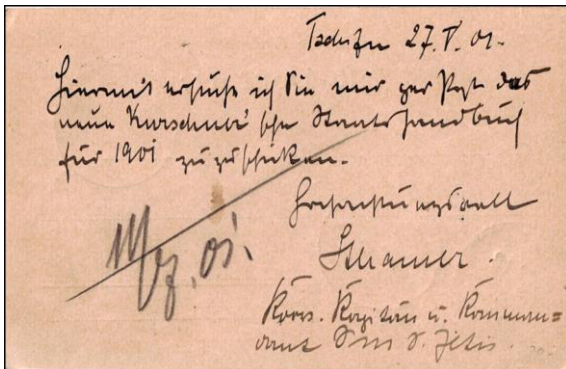 27. V. 01.
Hiermit ersuche ich Sie mir per Post das
neue Kürschner'sche Staatshandbuch
für 1901 zuzuschicken.
Hochachtungsvoll
Korv. Kapitän u. Komman=
dant S. M. S. Iltis.